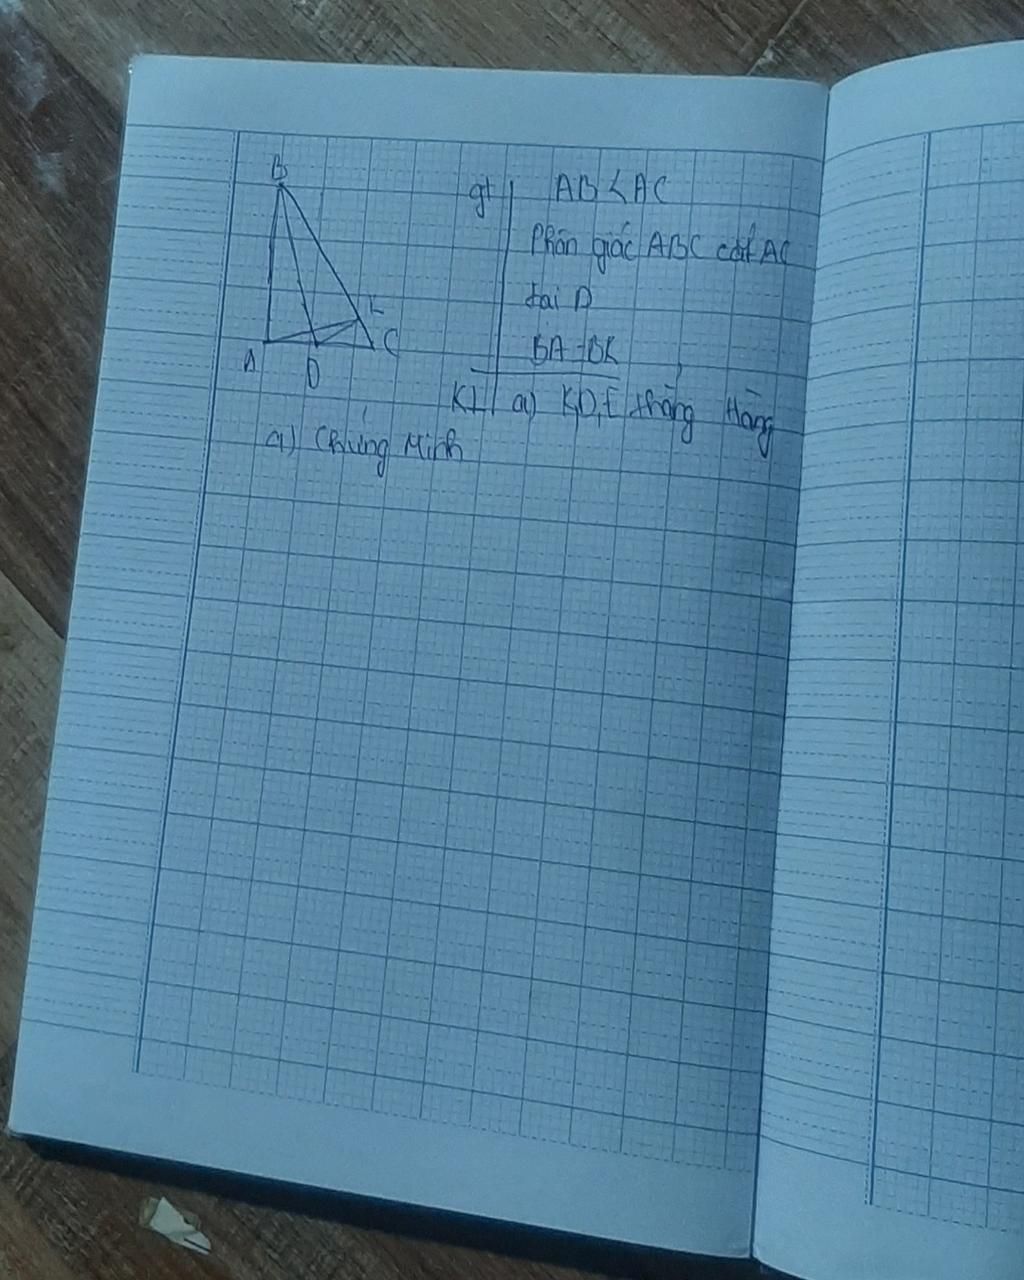 B
gt AB < AC
Phân giác ABC cắt AC
tai D
E
BA = BK
A D C
KL a) K,D,E thẳng Hàng
a) Chứng Minh